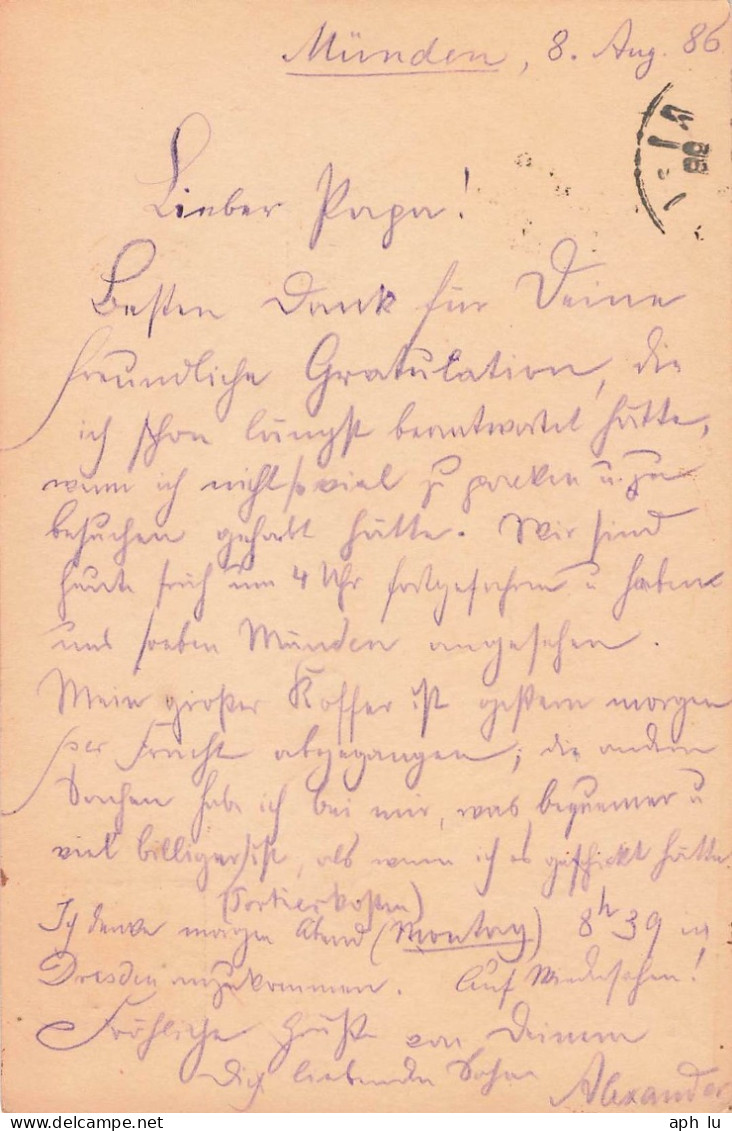 Münden, 8. Aug. 86
Lieber Papa!
Besten Dank für Deine
freundliche Gratulation, die
ich schon längst beantwortet hätte,
wenn ich nicht so viel zu packen u. zu
besuchen gehabt hätte. Wir sind
heute früh um 4 Uhr fortgefahren u haben
uns soeben Münden angesehen.
Mein großer Koffer ist gestern morgen
per Fracht abgegangen; die andern
Sachen habe ich bei mir, was bequemer u
viel billiger ist, als wenn ich es geschickt hätte
(Portierkosten)
Ich denke morgen Abend (Montag) 8h 39 in
Dresden anzukommen. Auf Wiedersehen!
Fröhliche Grüße von Deinem
Dich liebenden Sohne Alexander
86
aph lu